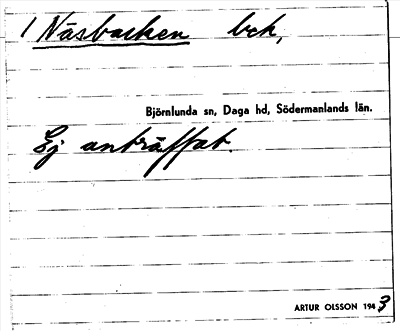 1 Näsbacken bck,
Björnlunda sn, Daga hd, Södermanlands län.
Ej anträffat.
ARTUR OLSSON 1943